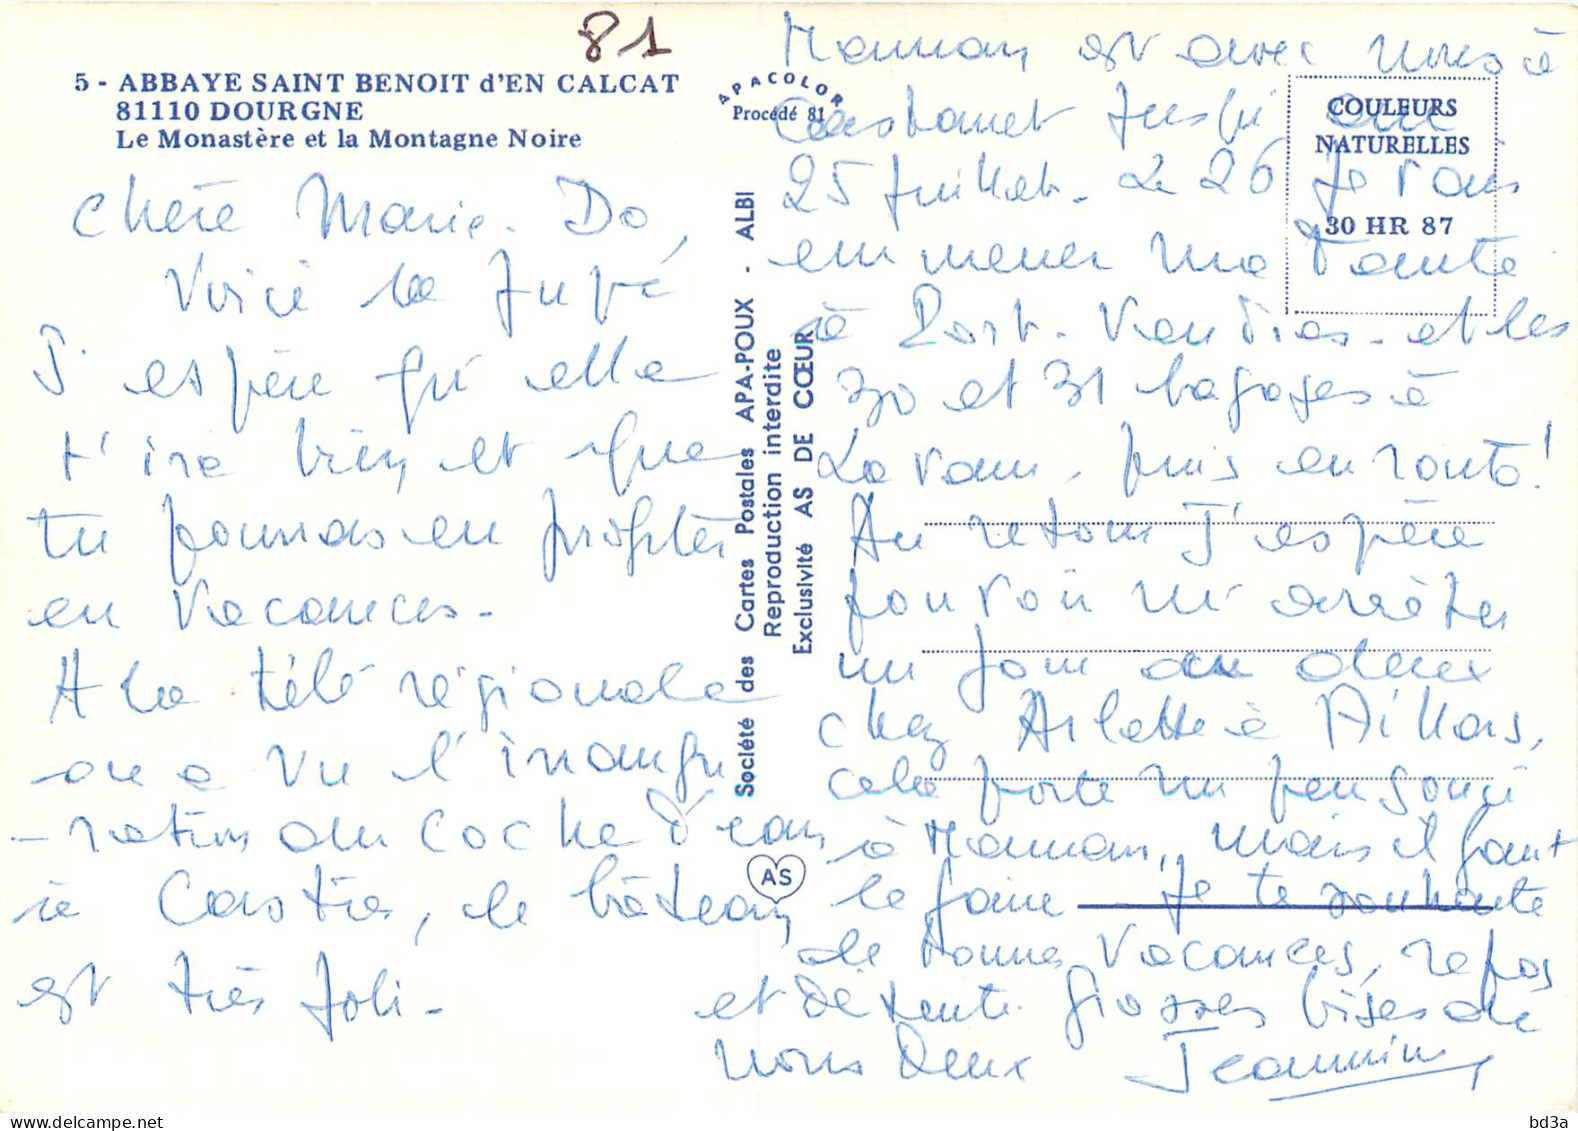 81
5 - ABBAYE SAINT BENOIT d'EN CALCAT
81110 DOURGNE
Le Monastère et la Montagne Noire
Chère Marie-Do,
Voici la Jupe
J'espère qu'elle
t'ira bien et que
tu pourras en profiter
en Vacances -
A la télé régionale
on a vu l'inaugu
- ration du coche d'eau
à Castres, le bâteau
est très joli -
APACOLOR
Procédé 81
Société des Cartes Postales APA-POUX . ALBI
Reproduction interdite
Exclusivité AS DE CŒUR
AS
COULEURS
NATURELLES
30 HR 87
Maman est avec nous à
Castanet jusqu'au
25 Juillet - Le 26 Je vais
emmener ma Tante
à Port-Vendres - et les
30 et 31 bagages à
Lavaur, puis en route!
Au retour J'espère
pouvoir m'arrêter
un jour ou deux
chez Arlette à Aillas,
cela porte un peu souci
à Maman, mais il faut
le faire - Je te souhaite
de bonnes Vacances, repos
et détente Grosses bises de
nous deux Jeannine
bd3a